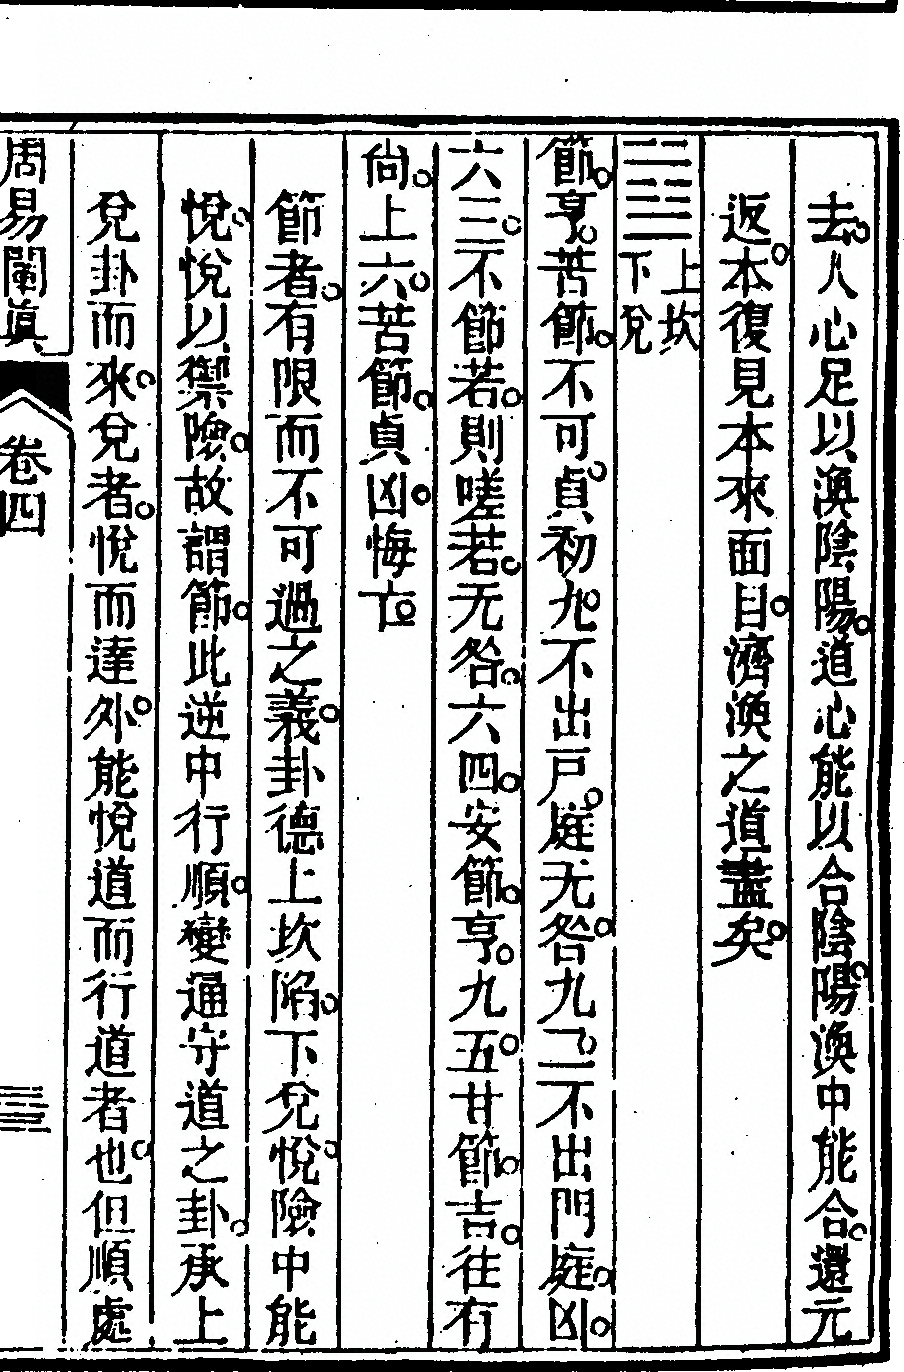 去。人心足以渙陰陽。道心能以合陰陽。渙中能合。還元
返本。復見本來面目。濟渙之道盡矣。
䷻
上坎
下兌
節。亨。苦節。不可貞。初九。不出戸庭。无咎。九二。不出門庭。凶。
六三。不節若。則嗟若。无咎。六四。安節。亨。九五。甘節。吉。往有
尙。上六。苦節。貞凶。悔亡。
節者。有限而不可過之義。卦德上坎陷。下兌悅。險中能
悅。悅以禦險。故謂節。此逆中行順。變通守道之卦。承上
兌卦而來。兌者。悅而達外。能悅道而行道者也。但順處
周易闡眞
卷四
三